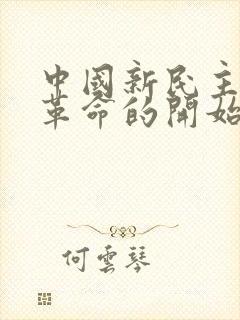 中國新民主
革命的開始
何雲琴